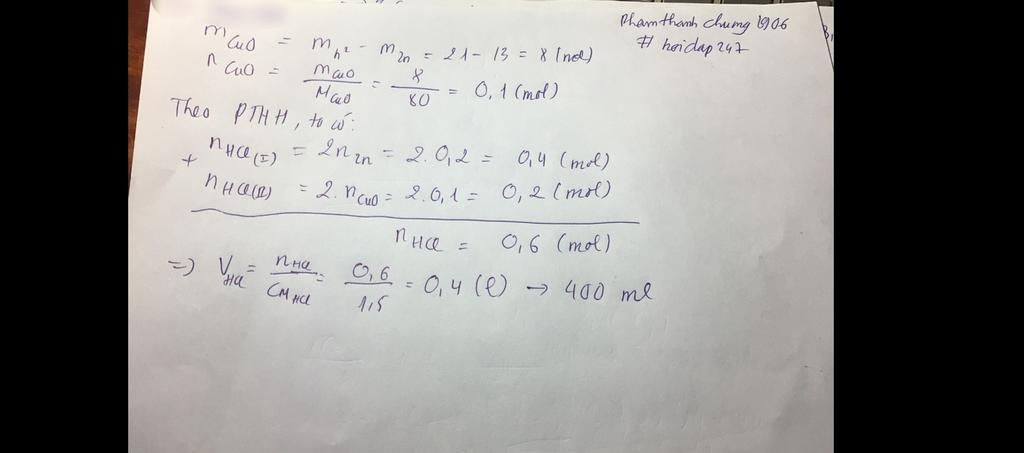 Phamthanhchung 1906
# hoidap247
m CuO = m h² - m Zn = 21 - 13 = 8 (mol)
n CuO = m CuO / M CuO = 8 / 80 = 0,1 (mol)
Theo PTHH, ta có:
+ n HCl (I) = 2n Zn = 2. 0,2 = 0,4 (mol)
n HCl (II) = 2. n CuO = 2. 0,1 = 0,2 (mol)
n HCl = 0,6 (mol)
=> V HCl = n HCl / CM HCl = 0,6 / 1,5 = 0,4 (l) → 400 ml